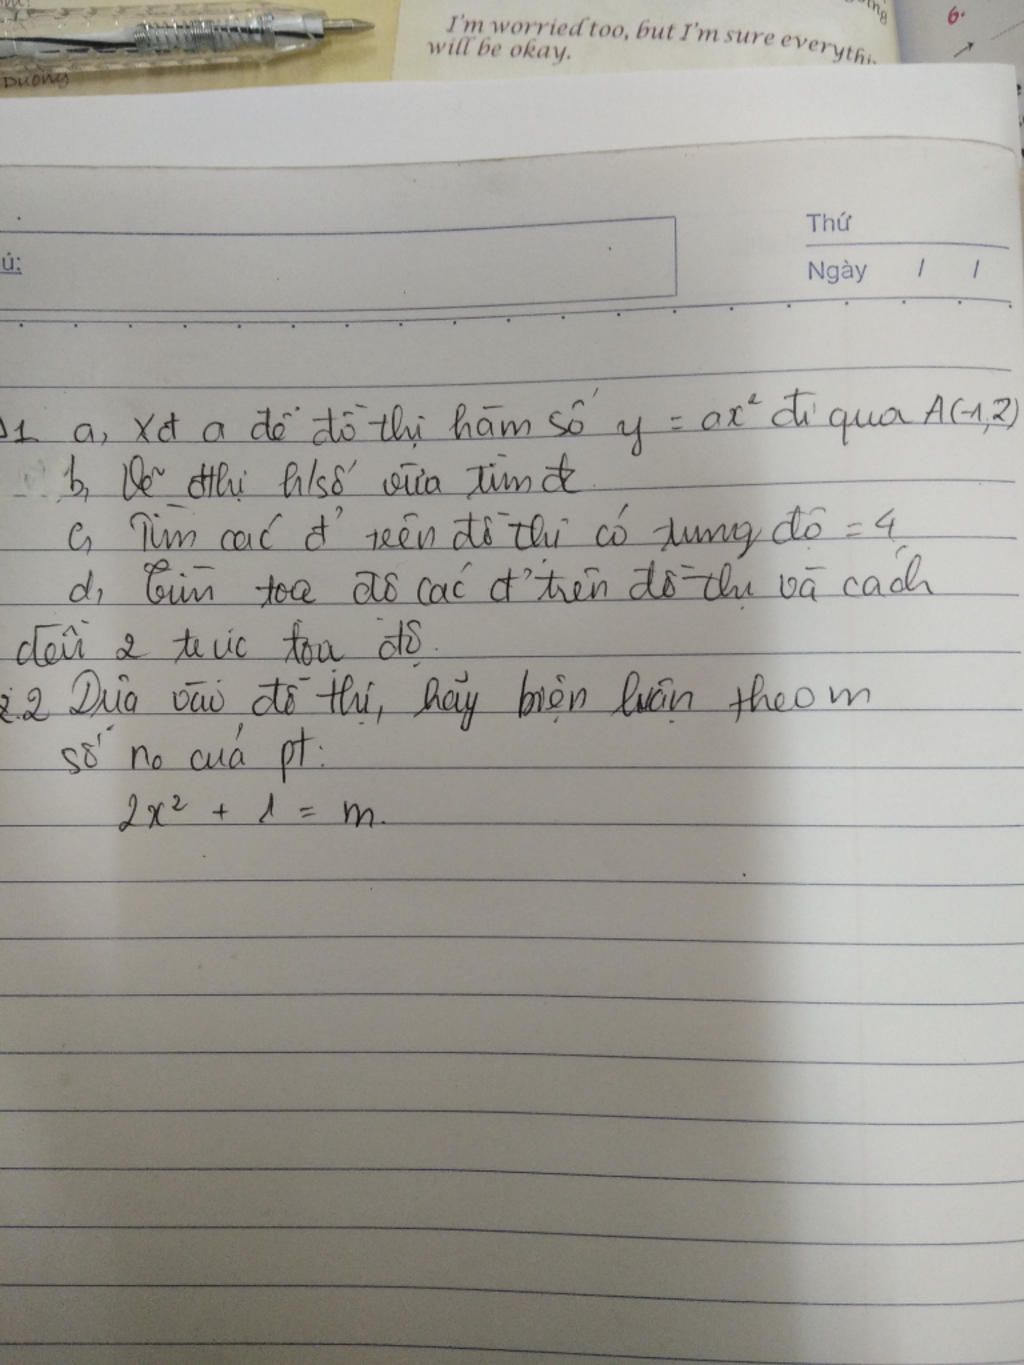 I'm worried too, but I'm sure everythi
will be okay.
6.
Dương
Thứ
Ngày / /
ú:
1 a, Xđ a để đồ thị hàm số y = ax² đi qua A(-1,2)
b, Vẽ đthị h/số vừa tìm đc
c, Tìm các đ' trên đồ thị có tung độ = 4
d, Tìm toạ độ các đ' trên đồ thị và cách
đều 2 trục toạ độ.
2 Dựa vào đồ thị, hãy biện luận theo m
số no của pt:
2x² + 1 = m.